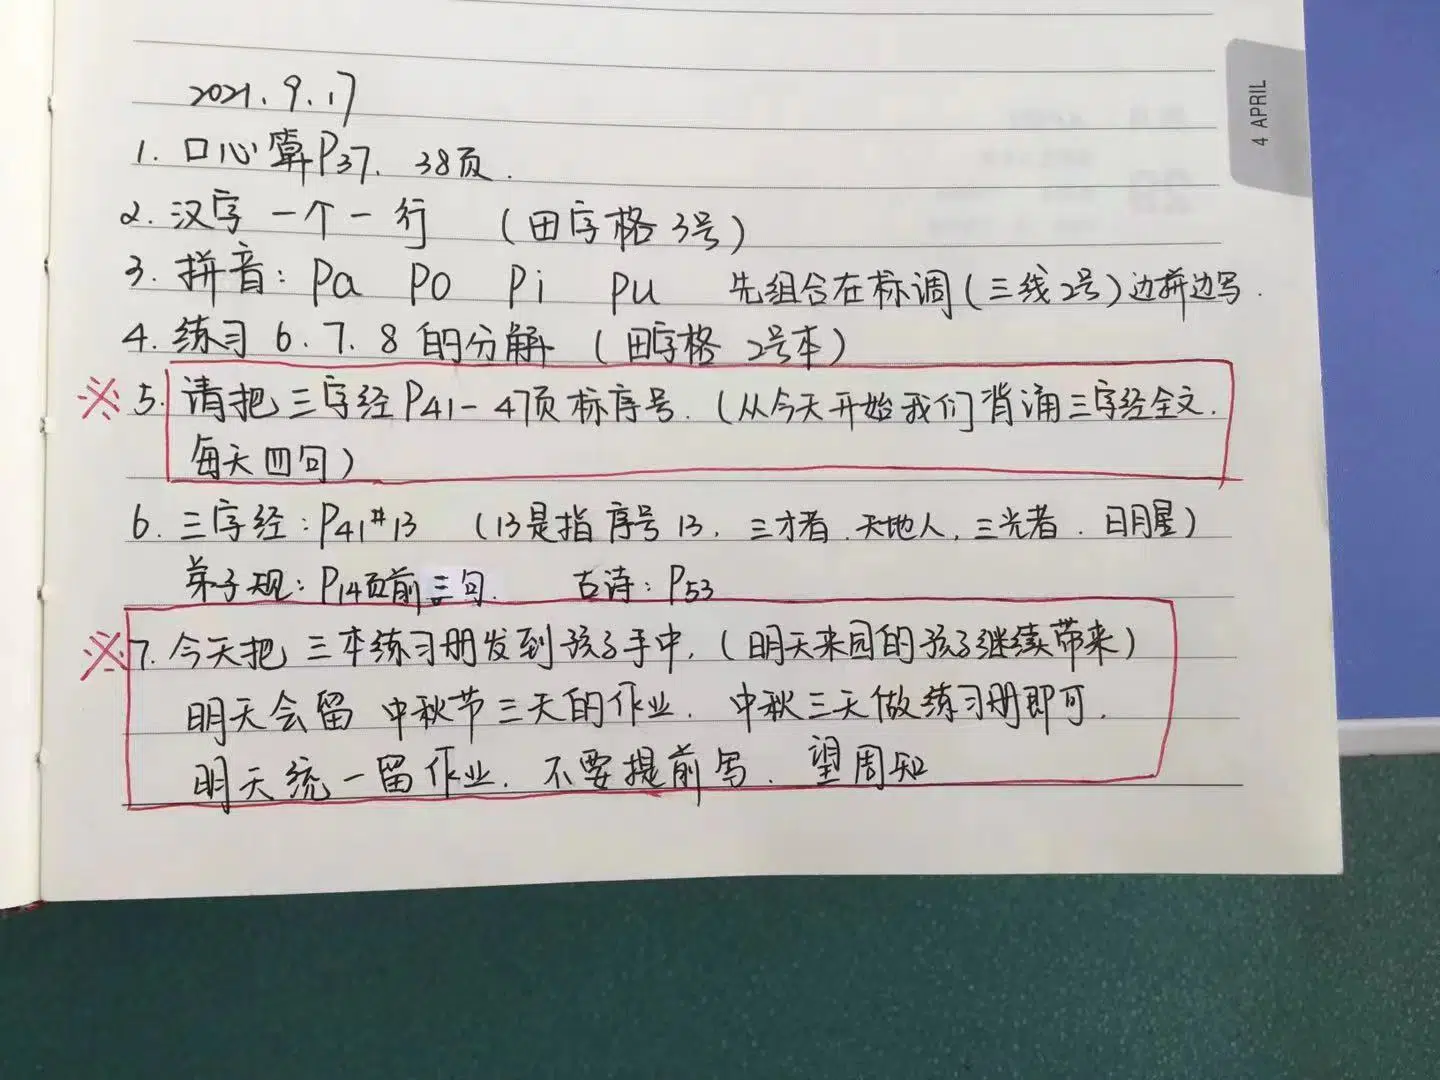 2021.9.17
1. 口心算P37、38页.
2. 汉字 一个一行 (田字格3号)
3. 拼音: pa po pi pu 先组合在标调(三线2号)边拼边写.
4. 练习 6.7.8 的分解 (田字格 2号本)
※ 5. 请把三字经P41-47页标序号.(从今天开始我们背诵三字经全文.
每天四句)
6. 三字经: P41#13 (13是指序号13. 三才者.天地人,三光者.日月星)
弟子规: P14页前三句. 古诗: P53
※ 7. 今天把三本练习册发到孩子手中,(明天来园的孩子继续带来)
明天会留 中秋节三天的作业. 中秋三天做练习册即可.
明天统一留作业. 不要提前写. 望周知
4 APRIL